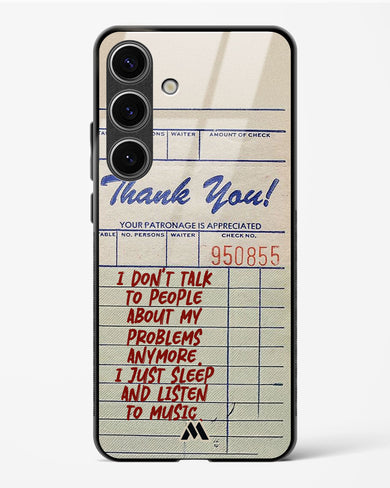 PERSONS WAITER AMOUNT OF CHECK
Thank You!
YOUR PATRONAGE IS APPRECIATED
TABLE NO. PERSONS WAITER CHECK NO.
950855
I DON'T TALK
TO PEOPLE
ABOUT MY
PROBLEMS
ANYMORE.
I JUST SLEEP
AND LISTEN
TO MUSIC